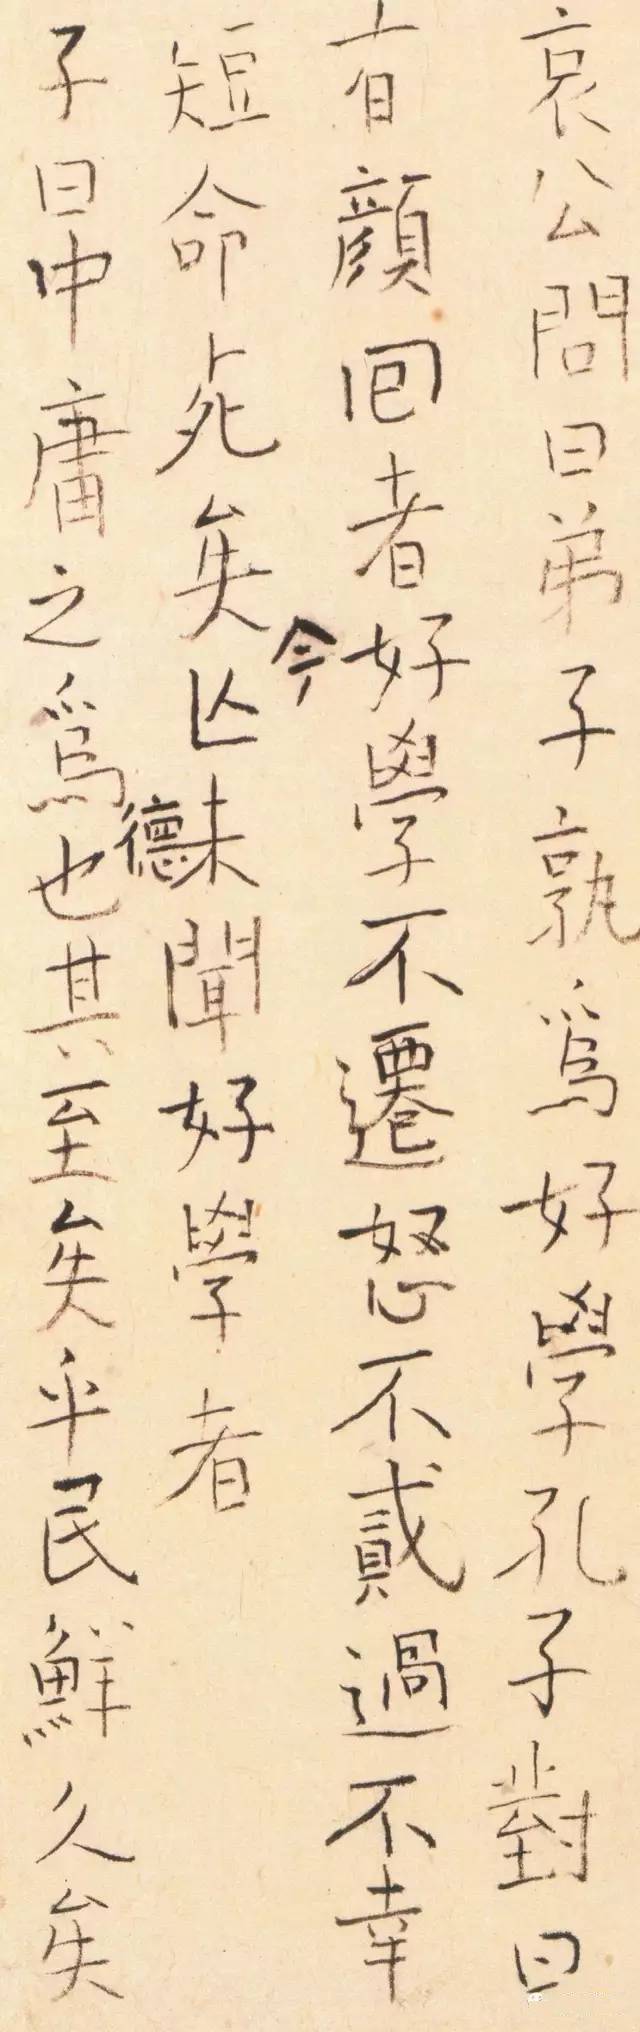 哀公問曰弟子孰爲好學孔子對曰
有顔回者好學不遷怒不貳過不幸
短命死矣今亾未聞好學者
子曰中庸之爲德也其至矣乎民鮮久矣